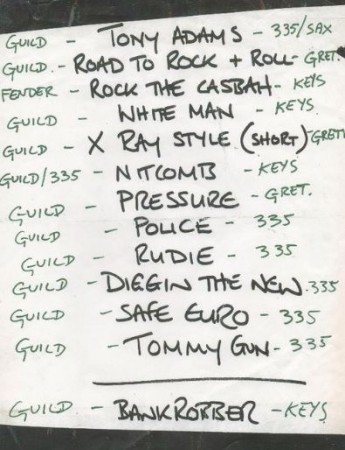 GUILD - TONY ADAMS - 335/SAX
GUILD - ROAD TO ROCK + ROLL - GRET.
FENDER - ROCK THE CASBAH - KEYS
GUILD - WHITE MAN - KEYS.
GUILD - X RAY STYLE (SHORT) GRETT
GUILD/335 - NITCOMB - KEYS
GUILD - PRESSURE - GRET.
GUILD - POLICE - 335
GUILD - RUDIE - 335
GUILD - DIGGIN THE NEW - 335
GUILD - SAFE EURO - 335
GUILD - TOMMY GUN - 335
GUILD - BANKROBBER - KEYS